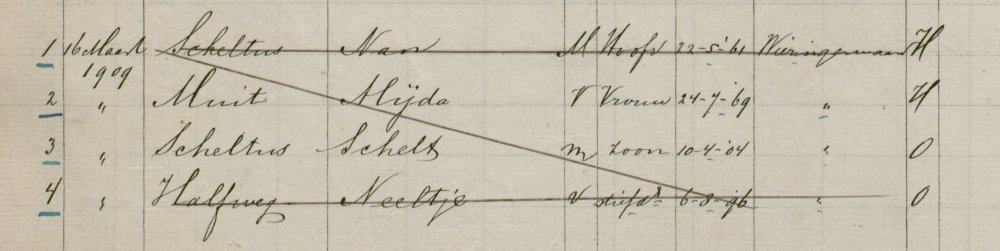 1 16 Maart Scheltus Nan M Hoofd 22-5-'61 Wieringerwaard H
1909
2 " Muit Alijda V Vrouw 24-7-'69 " H
3 " Scheltus Schelt m zoon 10-4-'04 " O
4 " Halfweg Neeltje V stiefdr 6-8-'96 " O